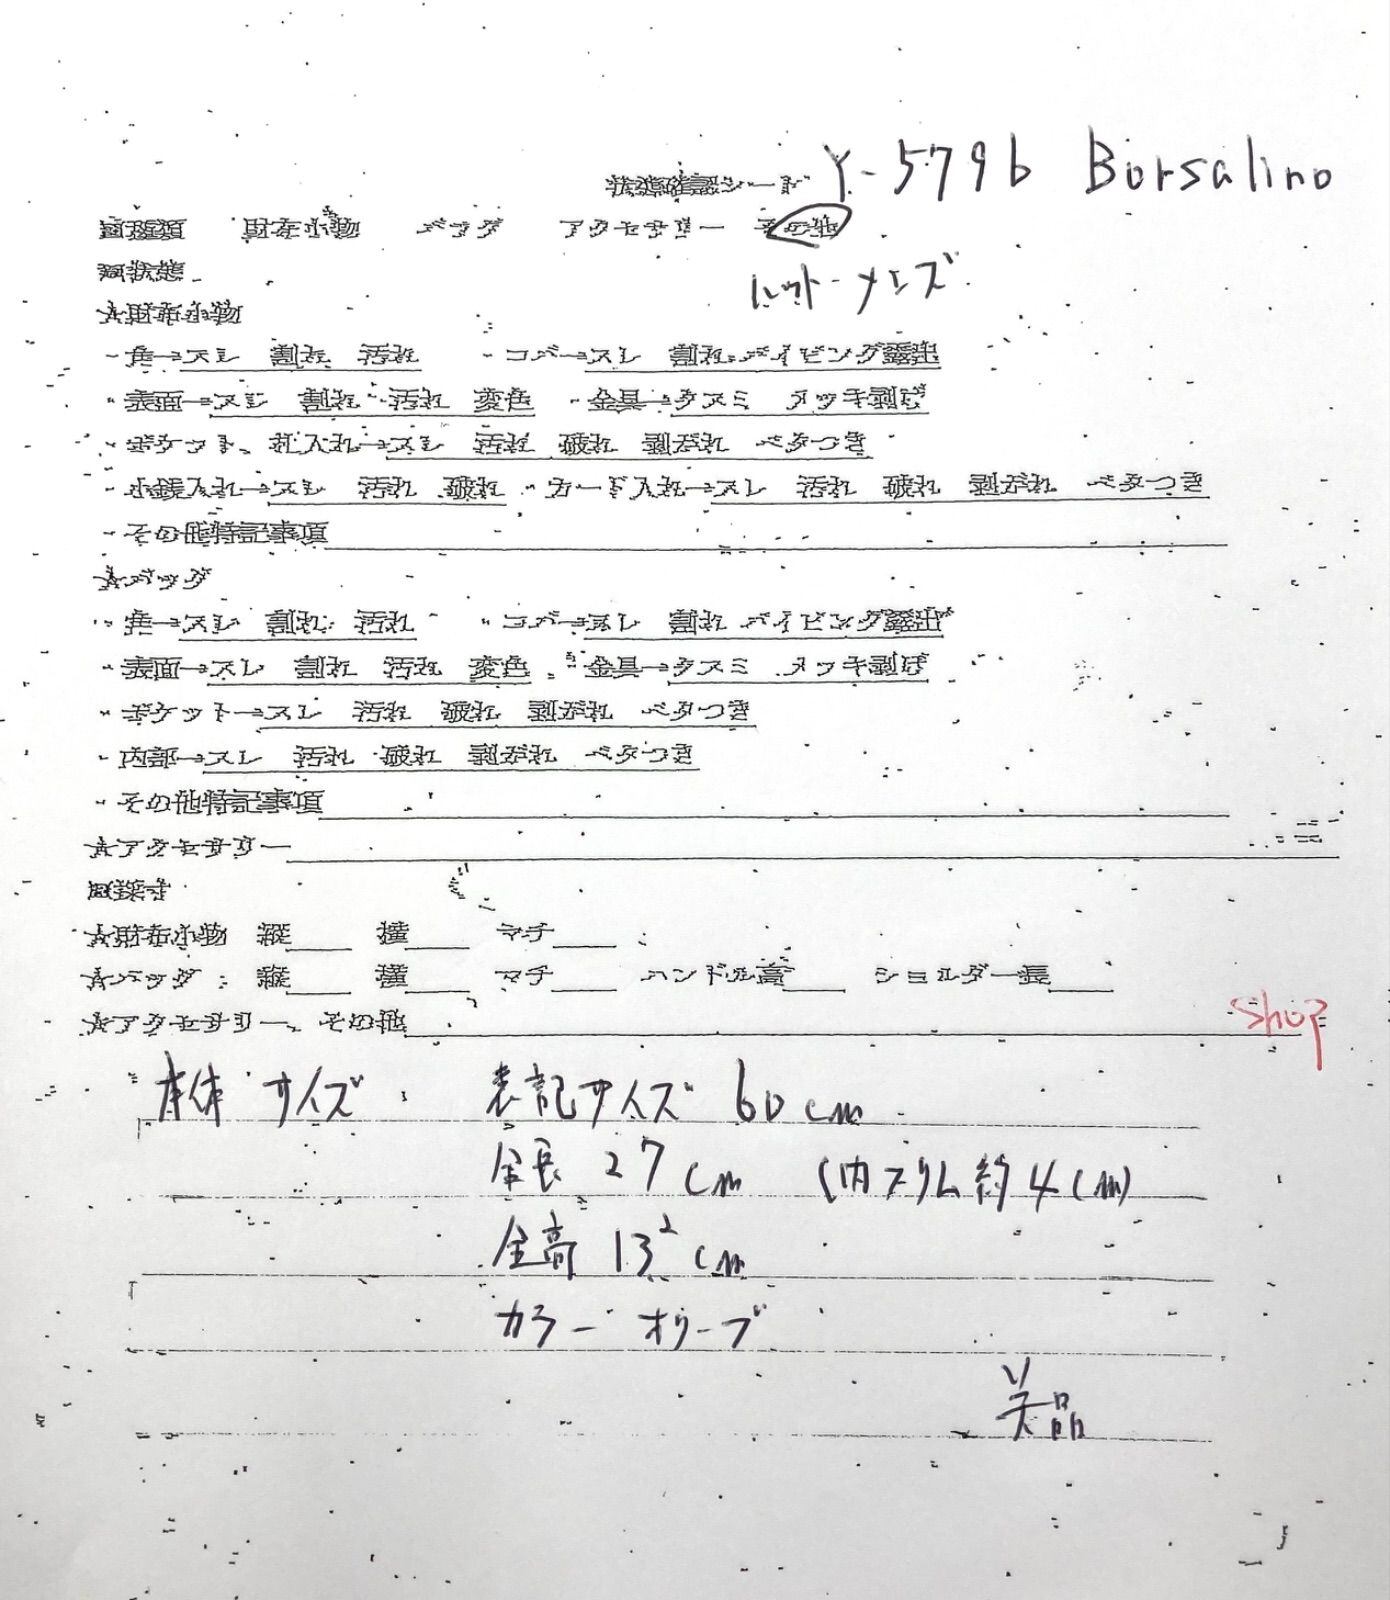 状態確認シート Y-5796 Borsalino
財布小物 バッグ アクセサリー その他
■状態 ハット メンズ
★財布小物
・角→スレ 割れ 汚れ ・コバ→スレ 割れ パイピング露出
・表面→スレ 割れ 汚れ 変色 ・金具→クスミ メッキ剥げ
・ポケット、札入れ→スレ 汚れ 破れ 剥がれ ベタつき
・小銭入れ→スレ 汚れ 破れ ・カード入れ→スレ 汚れ 破れ 剥がれ ベタつき
・その他特記事項
★バッグ
・角→スレ 割れ 汚れ ・コバ→スレ 割れ パイピング露出
・表面→スレ 割れ 汚れ 変色 ・金具→クスミ メッキ剥げ
・ポケット→スレ 汚れ 破れ 剥がれ ベタつき
・内部→スレ 汚れ 破れ 剥がれ ベタつき
・その他特記事項
★アクセサリー
■採寸
★財布小物 縦 横 マチ
★バッグ 縦 横 マチ ハンドル高 ショルダー長
★アクセサリー、その他 shop
本体サイズ 表記サイズ 60cm
全長 27cm (内ブリム約4cm)
全高 13²cm
カラー オリーブ
美品